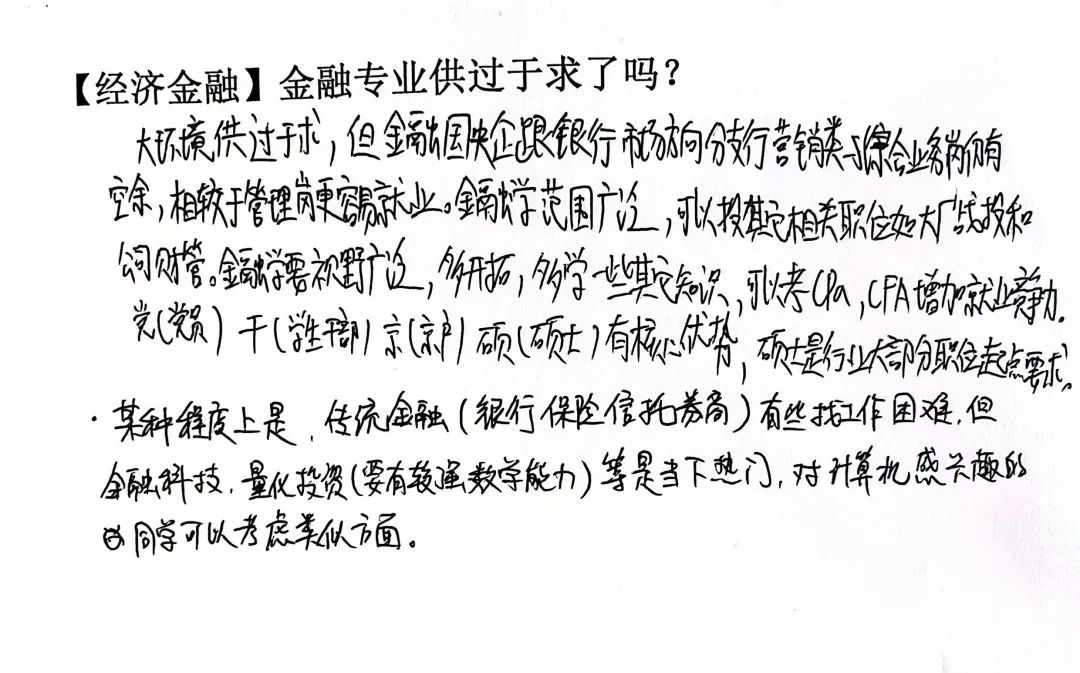 【经济金融】金融专业供过于求了吗？
大环境供过于求，但金融国央企跟银行市场方向分支行营销类与综合业务岗仍有
空余，相较于管理岗更容易就业。金融学范围广泛，可以投其它相关职位如大厂战投和
公司财管。金融学要视野广泛，多开拓，多学一些其它知识，可以考CPa，CFA增加就业竞争力。
党(党员)干(学生干部)京(京户)硕(硕士)有核心优势，硕士是行业大部分职位起点要求。
·某种程度上是，传统金融(银行保险信托券商)有些找工作困难，但
金融科技，量化投资(要有较强数学能力)等是当下热门，对计算机感兴趣的
同学可以考虑类似方面。